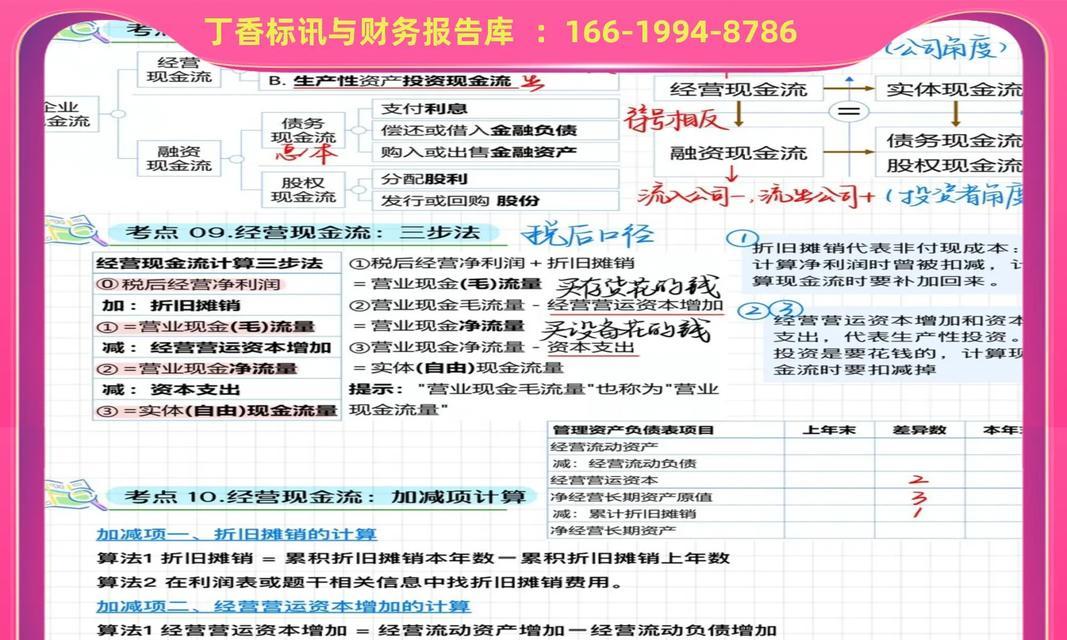 丁香标讯与财务报告库 ：166-1994-8786
考点
(公司角度)
经营
现金流
B. 生产性资产投资现金流 出
企业
金流
融资
现金流
债务
现金流
息/本
支付利息
偿还或借入金融负债
购入或出售金融资产
股权
现金流
分配股利
发行或回购 股份
经营现金流
实体现金流
=
符号相反
融资现金流
债务现金流
股权现金流
流入公司-, 流出公司+ (投资者角度
考点 09.经营现金流：三步法
税后口径
经营现金流计算三步法
⓪税后经营净利润
加：折旧摊销
①=营业现金(毛)流量
减：经营营运资本增加
②=营业现金净流量
减：资本支出
③=实体(自由)现金流量
①税后经营净利润 + 折旧摊销
= 营业现金(毛)流量 买存货花的钱
②营业现金毛流量 - 经营营运资本增加
= 营业现金净流量 买设备花的钱
③营业现金净流量 - 资本支出
= 实体(自由)现金流量
提示："营业现金毛流量"也称为"营业
现金流量"
①
折旧摊销代表非付现成本：
计算净利润时曾被扣减，计
算现金流时要补加回来。
②③
经营营运资本增加和资本
支出，代表生产性投资。
投资是要花钱的，计算现
金流时要扣减掉
管理资产负债表项目 上年末 差异数 本年末
经营流动资产
减：经营流动负债
经营营运资本 2
净经营长期资产原值 3
减：累计折旧摊销 1
净经营长期资产
考点 10.经营现金流：加减项计算
加减项一、折旧摊销的计算
算法1 折旧摊销 = 累积折旧摊销本年数－累积折旧摊销上年数
算法2 在利润表或题干相关信息中找折旧摊销费用。
加减项二、经营营运资本增加的计算
算法1 经营营运资本增加 = 经营流动资产增加－经营流动负债增加